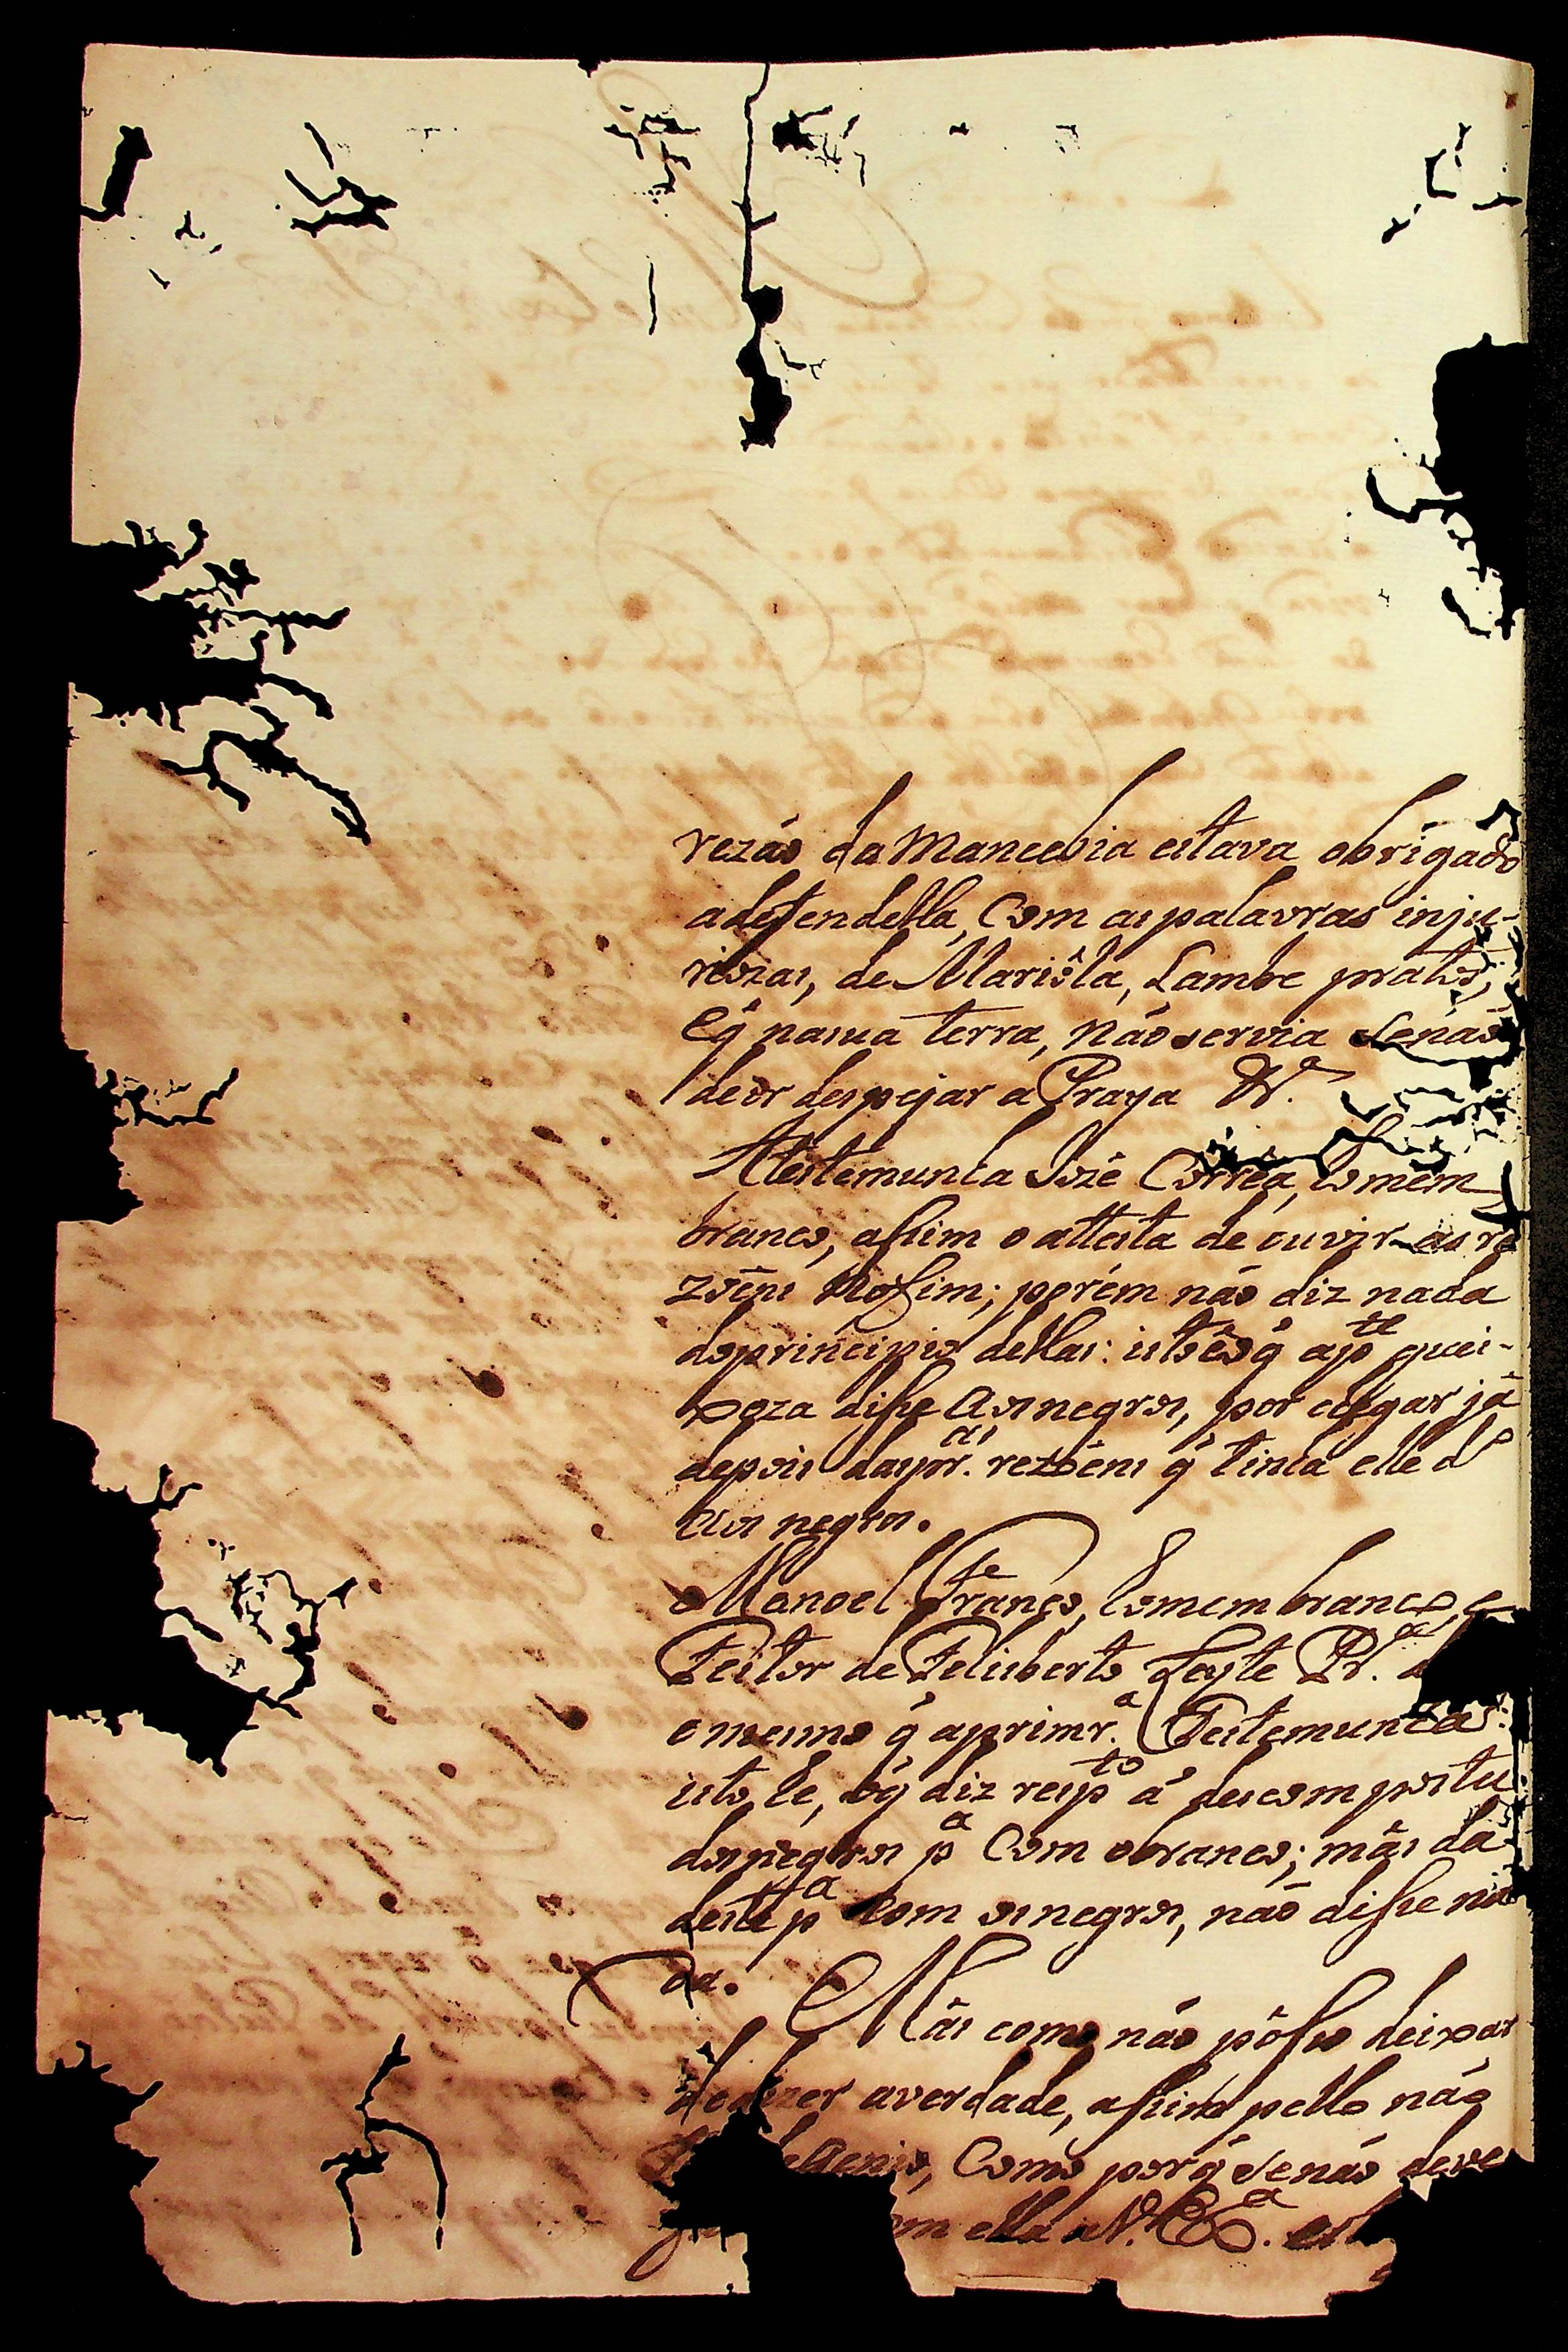 rezáo da Mancebia estava obrigado
a defendella, Com as palavras inju-
riozas, de Mariôla, Lambe pratos,
e q̃ na sua terra, não servia senáo
de despejar a Praya V.ª
A testemunha Jozê Corrêa, homem
branco, assim o attesta de ouvir as re
zõens no fim; porém náo diz nada
do principio dellas: isto hê o q̃ a p.te quei-
xoza disse aos negros, por chegar já
depois das pr.as rezoens q̃ tinha elle d.o
aos negros.
Manoel Franco, homem branco, e
Feitor de Felisberto Leyte Pr.ª d
o mesmo q̃ a primr.ª Testemunha:
isto he, o q̃ diz resp.to á descompostu
dos negros p.ª Com o branco; mâs da
deste p.ª Com os negros, não disse na
da.
Mâs como náo pôsso deixar
de dizer a verdade, assim pello náo
genio, Como porq̃ se náo deve
om ella a V. Ex.ª est